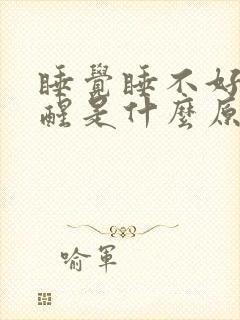 睡覺睡不好
醒是什麼原
喻軍